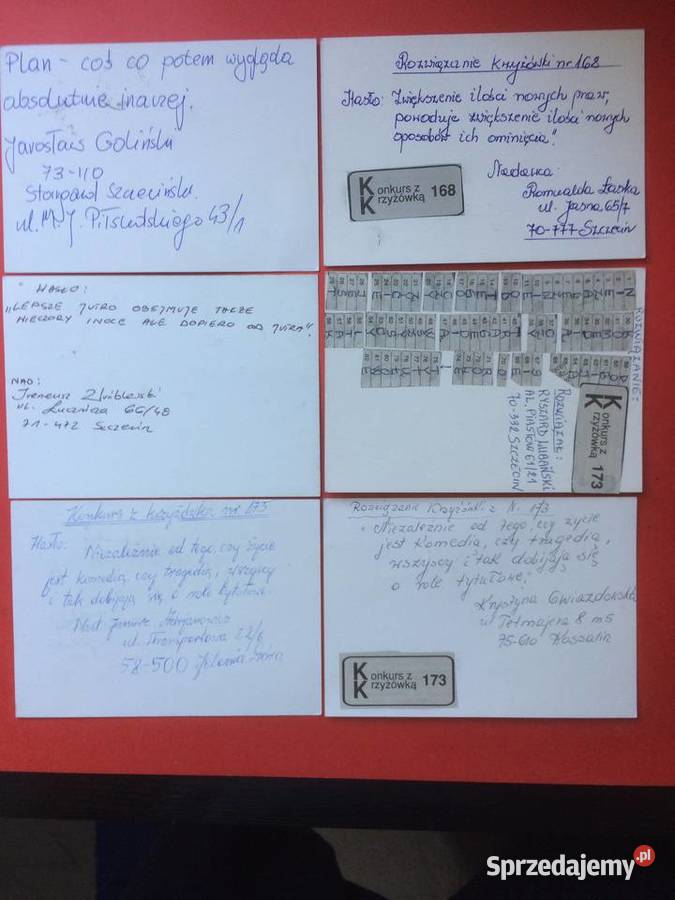 Plan - coś co potem wygląda
absolutnie inaczej.
Jarosław Goliński
73-110
Stargard Szczeciński.
ul. M. J. Piłsudskiego 43/1
Rozwiązanie krzyżówki nr 168
Hasło: "Zwiększenie ilości nowych praw,
powoduje zwiększenie ilości nowych
sposobów ich ominięcia".
Nadawca
Romualda Łaska
ul. Jasna 65/7
70-777 Szczecin
K onkurs z
K rzyżówką 168
HASŁO:
"LEPSZE JUTRO OBEJMUJE TAKŻE
WIECZORY I NOCE ALE DOPIERO OD JUTRA".
NAD:
Ireneusz
ul. Łucznicza 66/48
71-472 Szczecin
ROZWIĄZANIE:
ROZWIĄZAŁ:
RYSZARD LUBAŃSKI
AL. PIASTÓW 61/21
70-332 SZCZECIN
K onkurs z
K rzyżówką 173
Konkurs z krzyżówką nr 173
Hasło: Niezależnie od tego, czy życie
jest komedią, czy tragedią, wszyscy
i tak dobijają się o role tytułowe.
Nad. Janusz
ul. Transportowa
58-500 Jelenia Góra
Rozwiązanie Krzyżówki z Nr. 173
"Niezależnie od tego, czy życie
jest komedią, czy tragedią,
wszyscy i tak dobijają się
o role tytułowe."
Krystyna Gwiazdowska
ul Tetmajera 8 m 5
75-610 Koszalin
K onkurs z
K rzyżówką 173
Sprzedajemy.pl